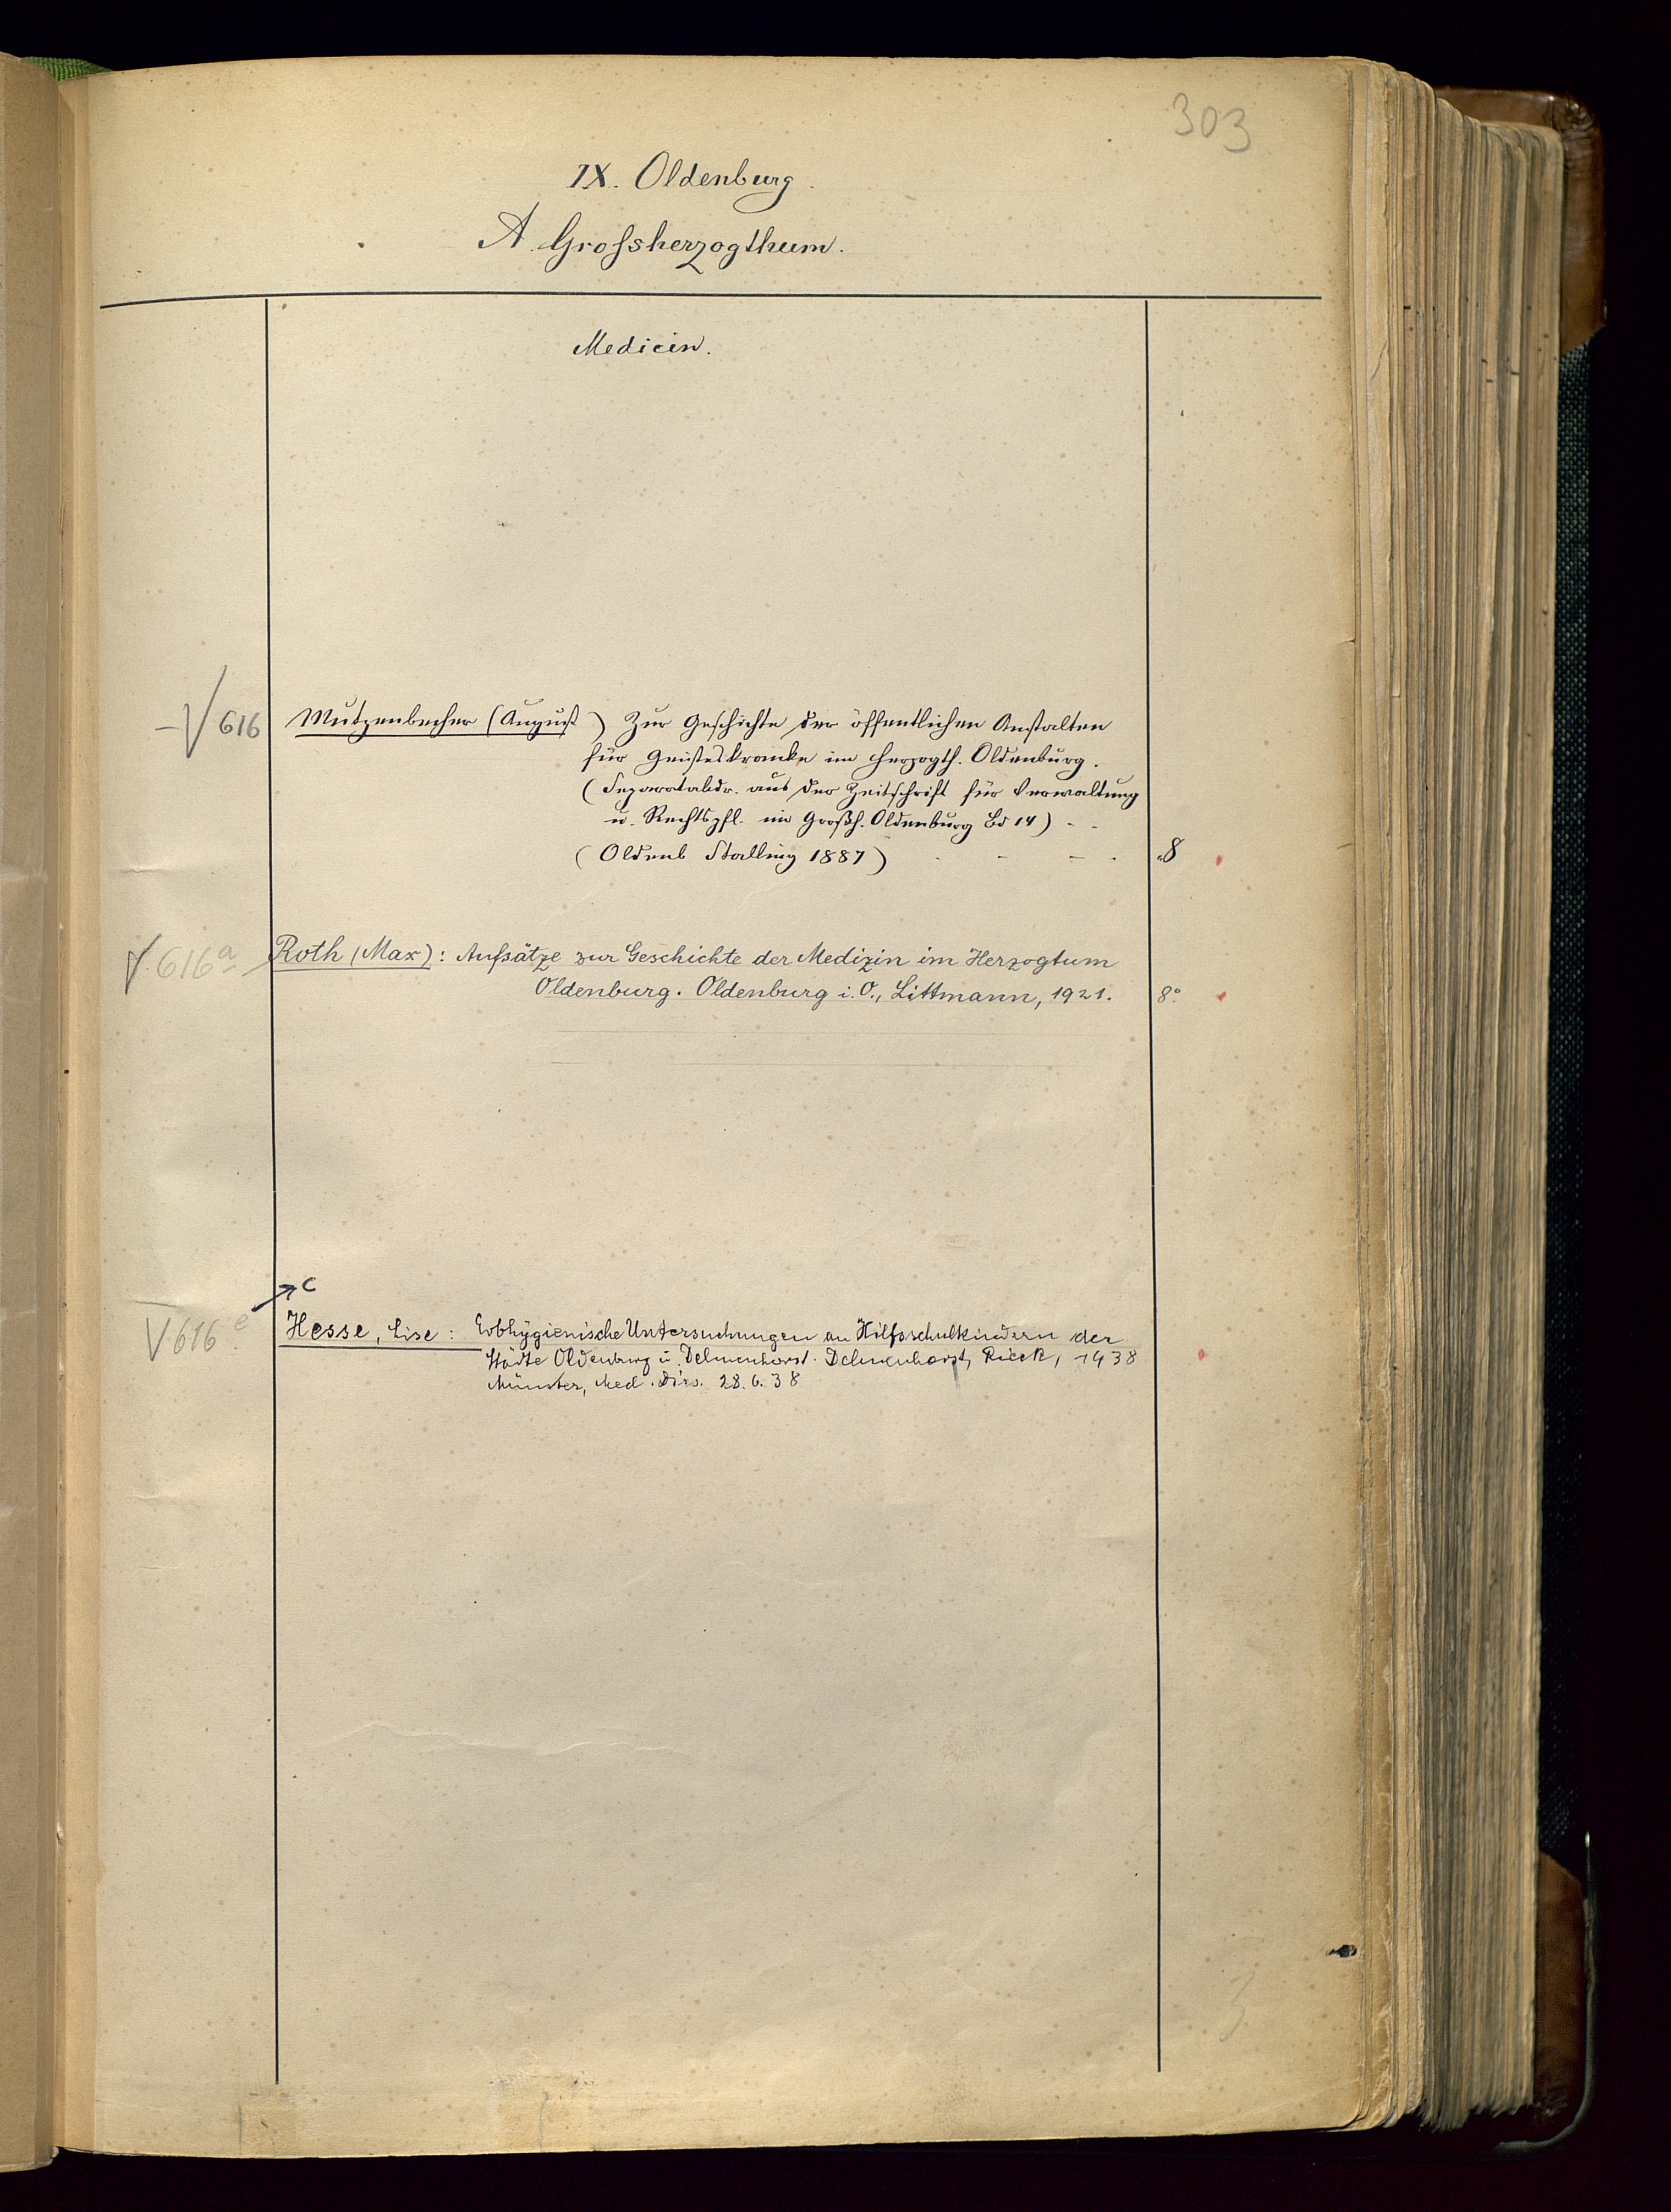 303
IX. Oldenburg.
A. Grossherzogthum.
Medicin.
616 Mutzenbecher (August) Zur Geschichte der öffentlichen Anstalten
für Geisteskranke im Herzogth. Oldenburg.
(Separatabdr. aus der Zeitschrift für Verwaltung
u. Rechtspfl. im Großh. Oldenburg Bd 14) - -
(Oldenb Stalling 1887) - - - - 8
616a Roth (Max): Aufsätze zur Geschichte der Medizin im Herzogtum
Oldenburg. Oldenburg i. O., Littmann, 1921. 8°
c
616e Hesse, Lise: Erbhygienische Untersuchungen an Hilfsschulkindern der
Städte Oldenburg u. Delmenhorst. Delmenhorst, Rieck, 1938
Münster, Med. Diss. 28.6.38